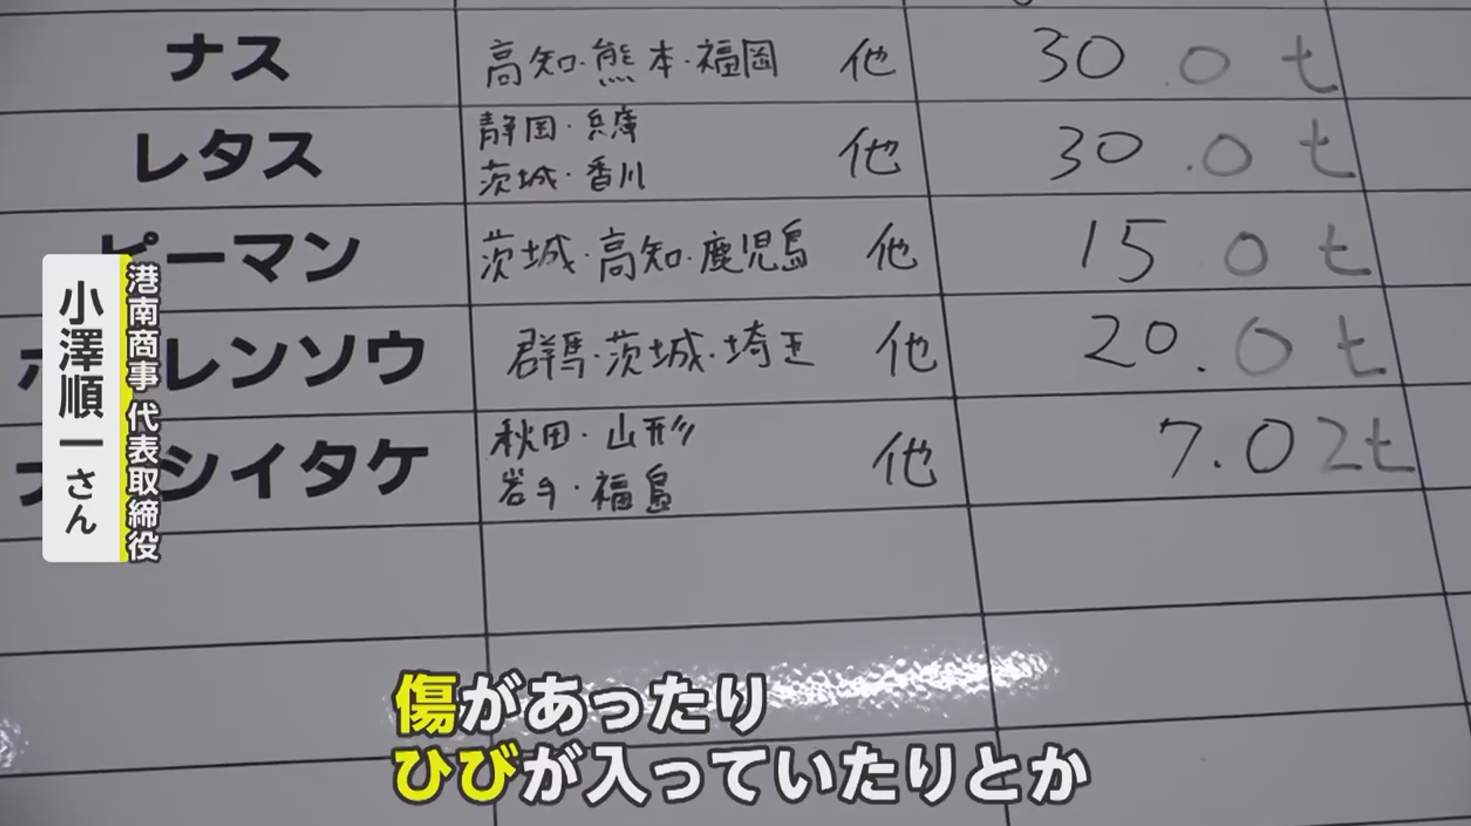 ナス 高知・熊本・福岡 他 30.0t
レタス 静岡・兵庫
茨城・香川 他 30.0t
ピーマン 茨城・高知・鹿児島 他 15 0t
レンソウ 群馬・茨城・埼玉 他 20.0t
シイタケ 秋田・山形
岩手・福島 他 7.02t
港南商事 代表取締役
小澤順一さん
傷があったり
ひびが入っていたりとか